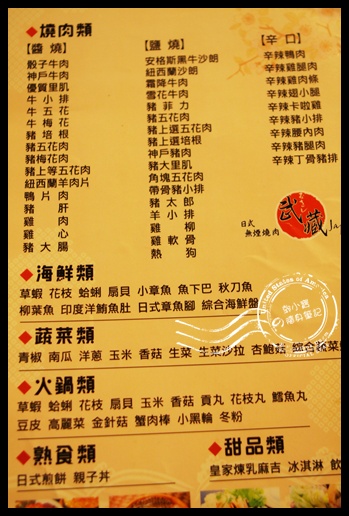 ◆燒肉類
【醬 燒】
骰子牛肉
神戶牛肉
優質里肌
牛 小 排
牛 五 花
牛 梅 花
豬 培 根
豬五花肉
豬梅花肉
豬上等五花肉
紐西蘭羊肉片
鴨 片 肉
豬 肝
雞 肉
雞 心
豬 大 腸
【鹽 燒】
安格斯黑牛沙朗
紐西蘭沙朗
霜降牛肉
雪花牛肉
豬 菲 力
豬五花肉
豬上選五花肉
豬上選培根
神戶豬肉
豬大里肌
角塊五花肉
帶骨豬小排
豬 太 郎
羊 小 排
雞 柳
雞 軟 骨
熱 狗
【辛 口】
辛辣鴨肉
辛辣雞腿肉
辛辣雞肉條
辛辣翅小腿
辛辣卡啦雞
辛辣豬小排
辛辣腰內肉
辛辣豬腿肉
辛辣丁骨豬排
武藏
日式
無煙燒肉
◆海鮮類
草蝦 花枝 蛤蜊 扇貝 小章魚 魚下巴 秋刀魚
柳葉魚 印度洋鮪魚肚 日式章魚腳 綜合海鮮盤
◆蔬菜類
青椒 南瓜 洋蔥 玉米 香菇 生菜 生菜沙拉 杏鮑菇 綜合
◆火鍋類
草蝦 蛤蜊 花枝 扇貝 玉米 香菇 貢丸 花枝丸 鱈魚丸
豆皮 高麗菜 金針菇 蟹肉棒 小黑輪 冬粉
◆熟食類
日式煎餅 親子丼
◆甜品類
皇家煉乳麻吉 冰淇淋